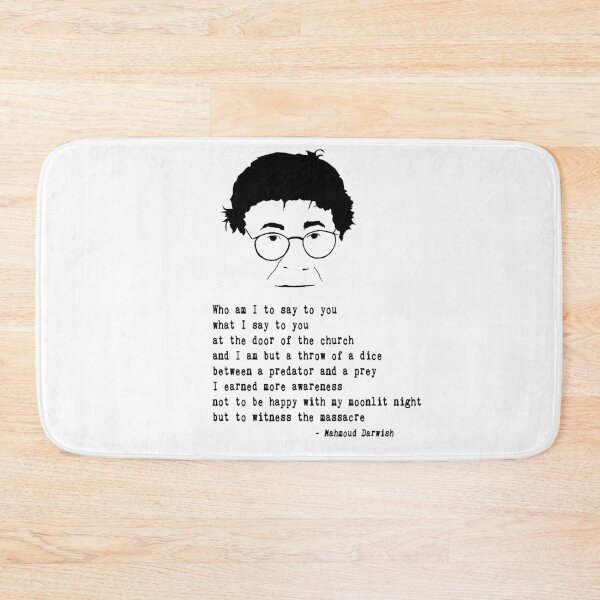 Who am I to say to you
what I say to you
at the door of the church
and I am but a throw of a dice
between a predator and a prey
I earned more awareness
not to be happy with my moonlit night
but to witness the massacre
- Mahmoud Darwish